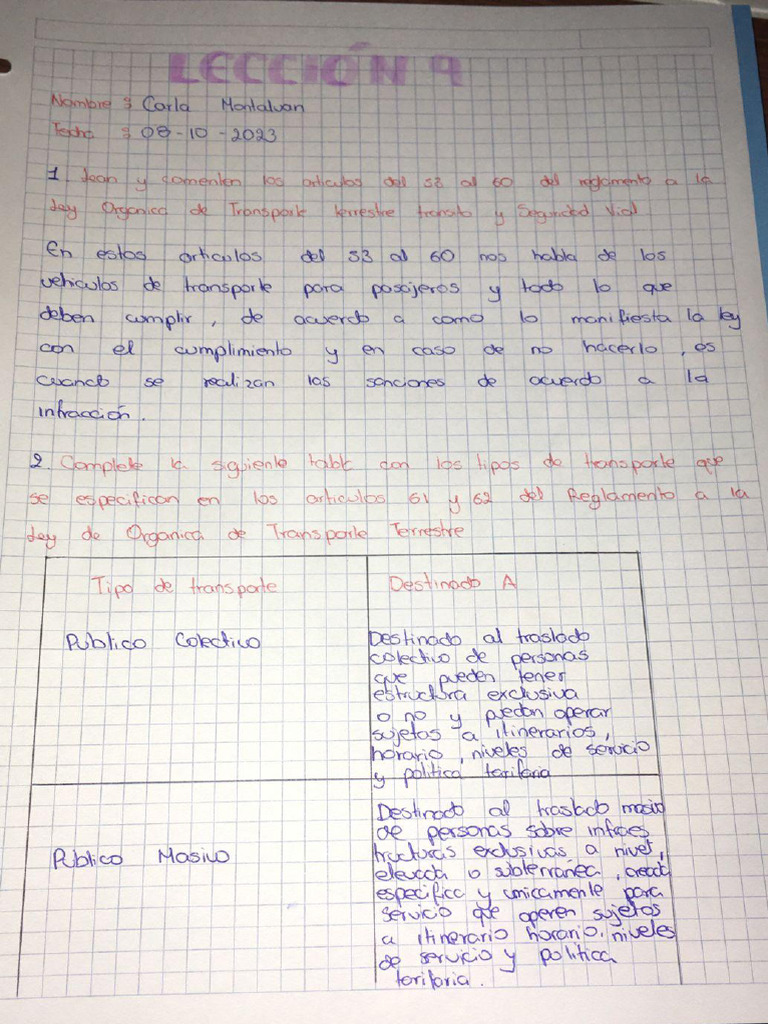 LECCIÓN 9
Nombre : Carla Montalvan
Fecha : 08-10-2023
1. Lean y comenten los articulos del 53 al 60 del reglamento a la
Ley Organica de Transporte terrestre transito y Seguridad Vial
En estos articulos del 53 al 60 nos habla de los
vehiculos de transporte para pasajeros y todo lo que
deben cumplir, de acuerdo a como lo manifiesta la ley
con el cumplimiento y en caso de no hacerlo, es
cuando se realizan las sanciones de acuerdo a la
infracción.
2. Complete la siguiente tabla con los tipos de transporte que
se especifican en los articulos 61 y 62 del Reglamento a la
Ley de Organica de Transporte Terrestre
Tipo de transporte
Destinado A
Público Colectivo
Destinado al traslado
colectivo de personas
que pueden tener
estructura exclusiva
o no y puedan operar
sujetos a itinerarios,
horario, niveles de servicio
y politica tarifaria
Público Masivo
Destinado al traslado masivo
de personas sobre infraes
tructuras exclusivas a nivel,
elevada o subterránea, creada
especifica y unicamente para
servicio que operen sujetos
a itinerario horario, niveles
de servicio y politica
tarifaria.